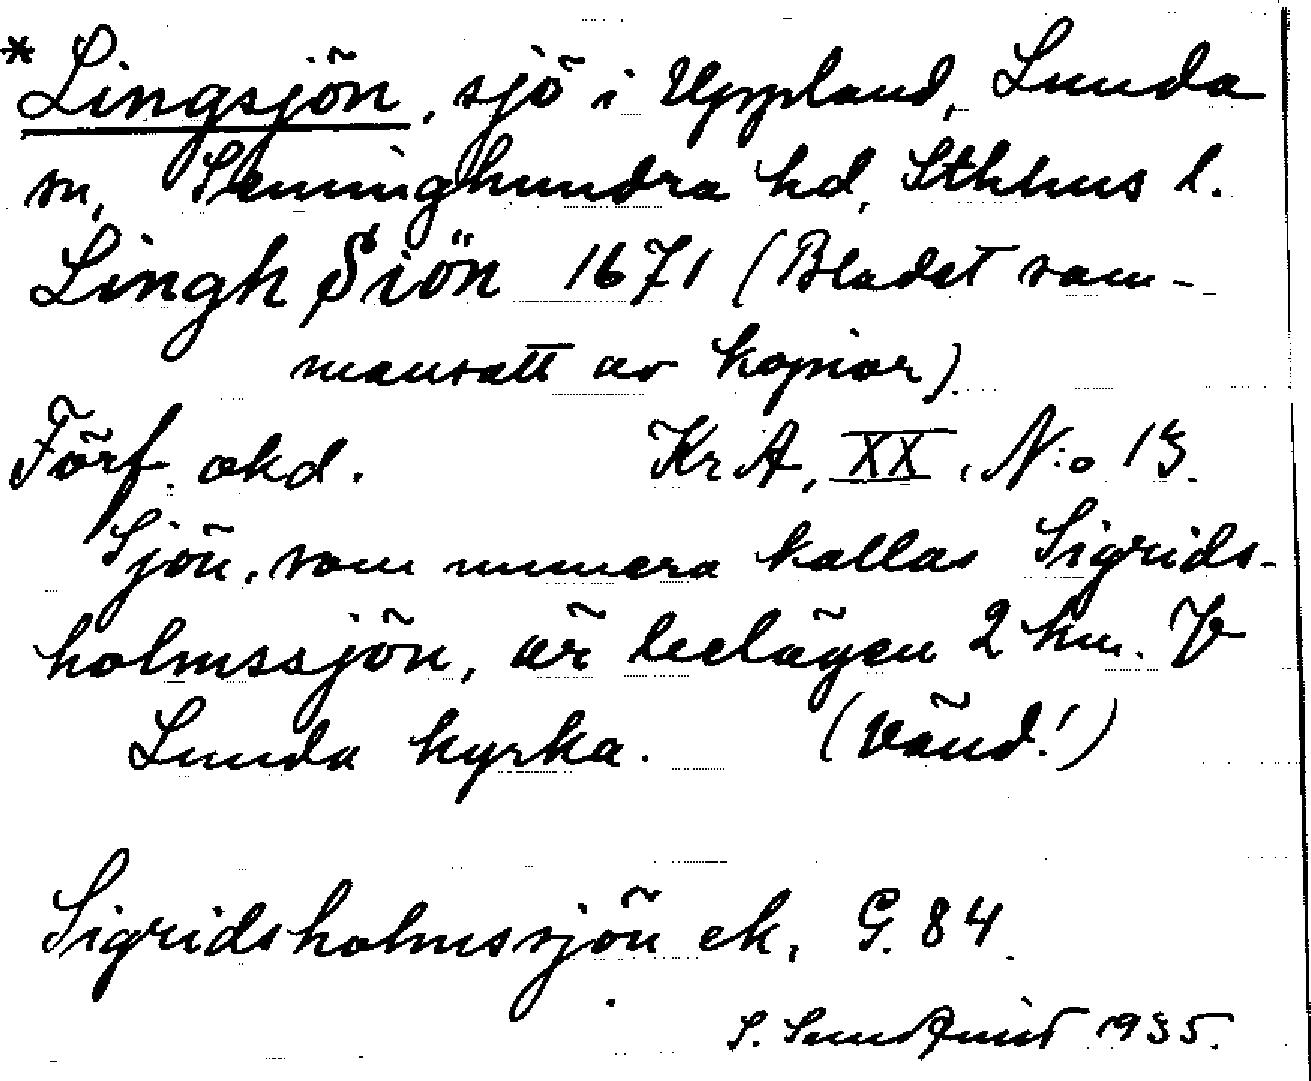 * Lingsjön, sjö i Uppland, Lunda
sn, Seminghundra hd, Sthlms l.
Lingh Siön 1671 (Bladet sam-
mansatt av kopior)
Förf. okd. KrA, XX, N:o 13.
Sjön, som numera kallas Sigrids-
holmssjön, är belägen 2 km. V
Lunda kyrka. (Vänd!)
Sigridsholmssjön ek. G. 84.
S. Sundqvist 1935.